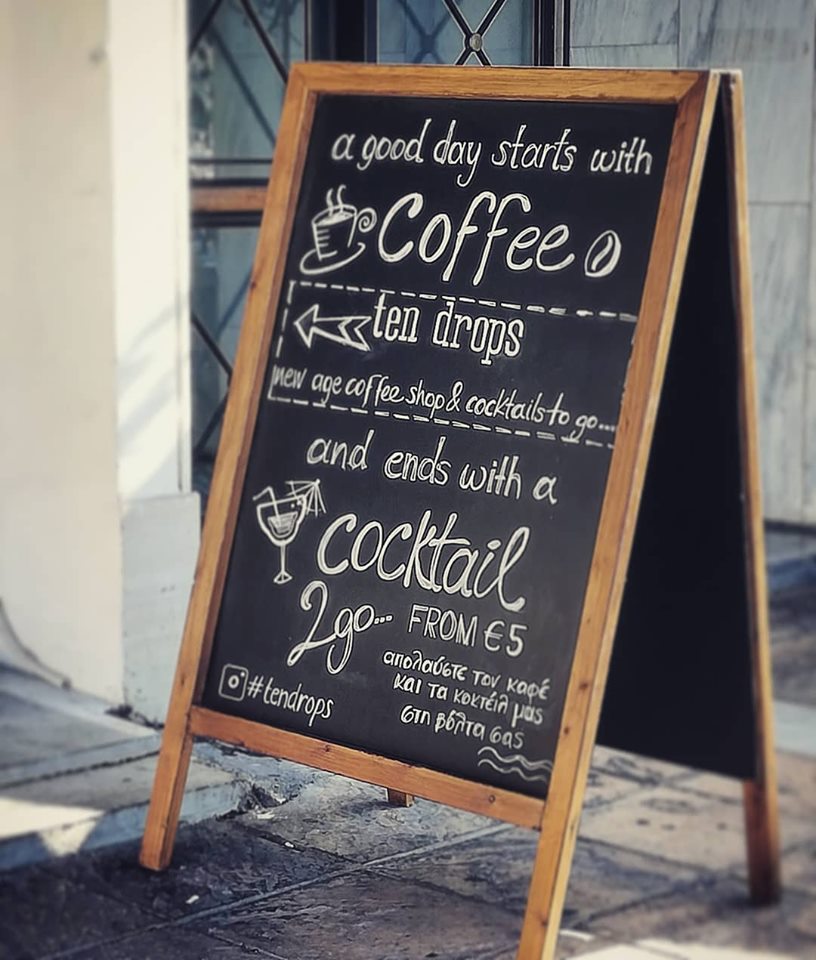 a good day starts with
Coffee
ten drops
new age coffee shop & cocktails to go...
and ends with a
cocktail
2go... FROM €5
απολαύστε τον καφέ
και τα κοκτέιλ μας
στη βόλτα σας
#tendrops